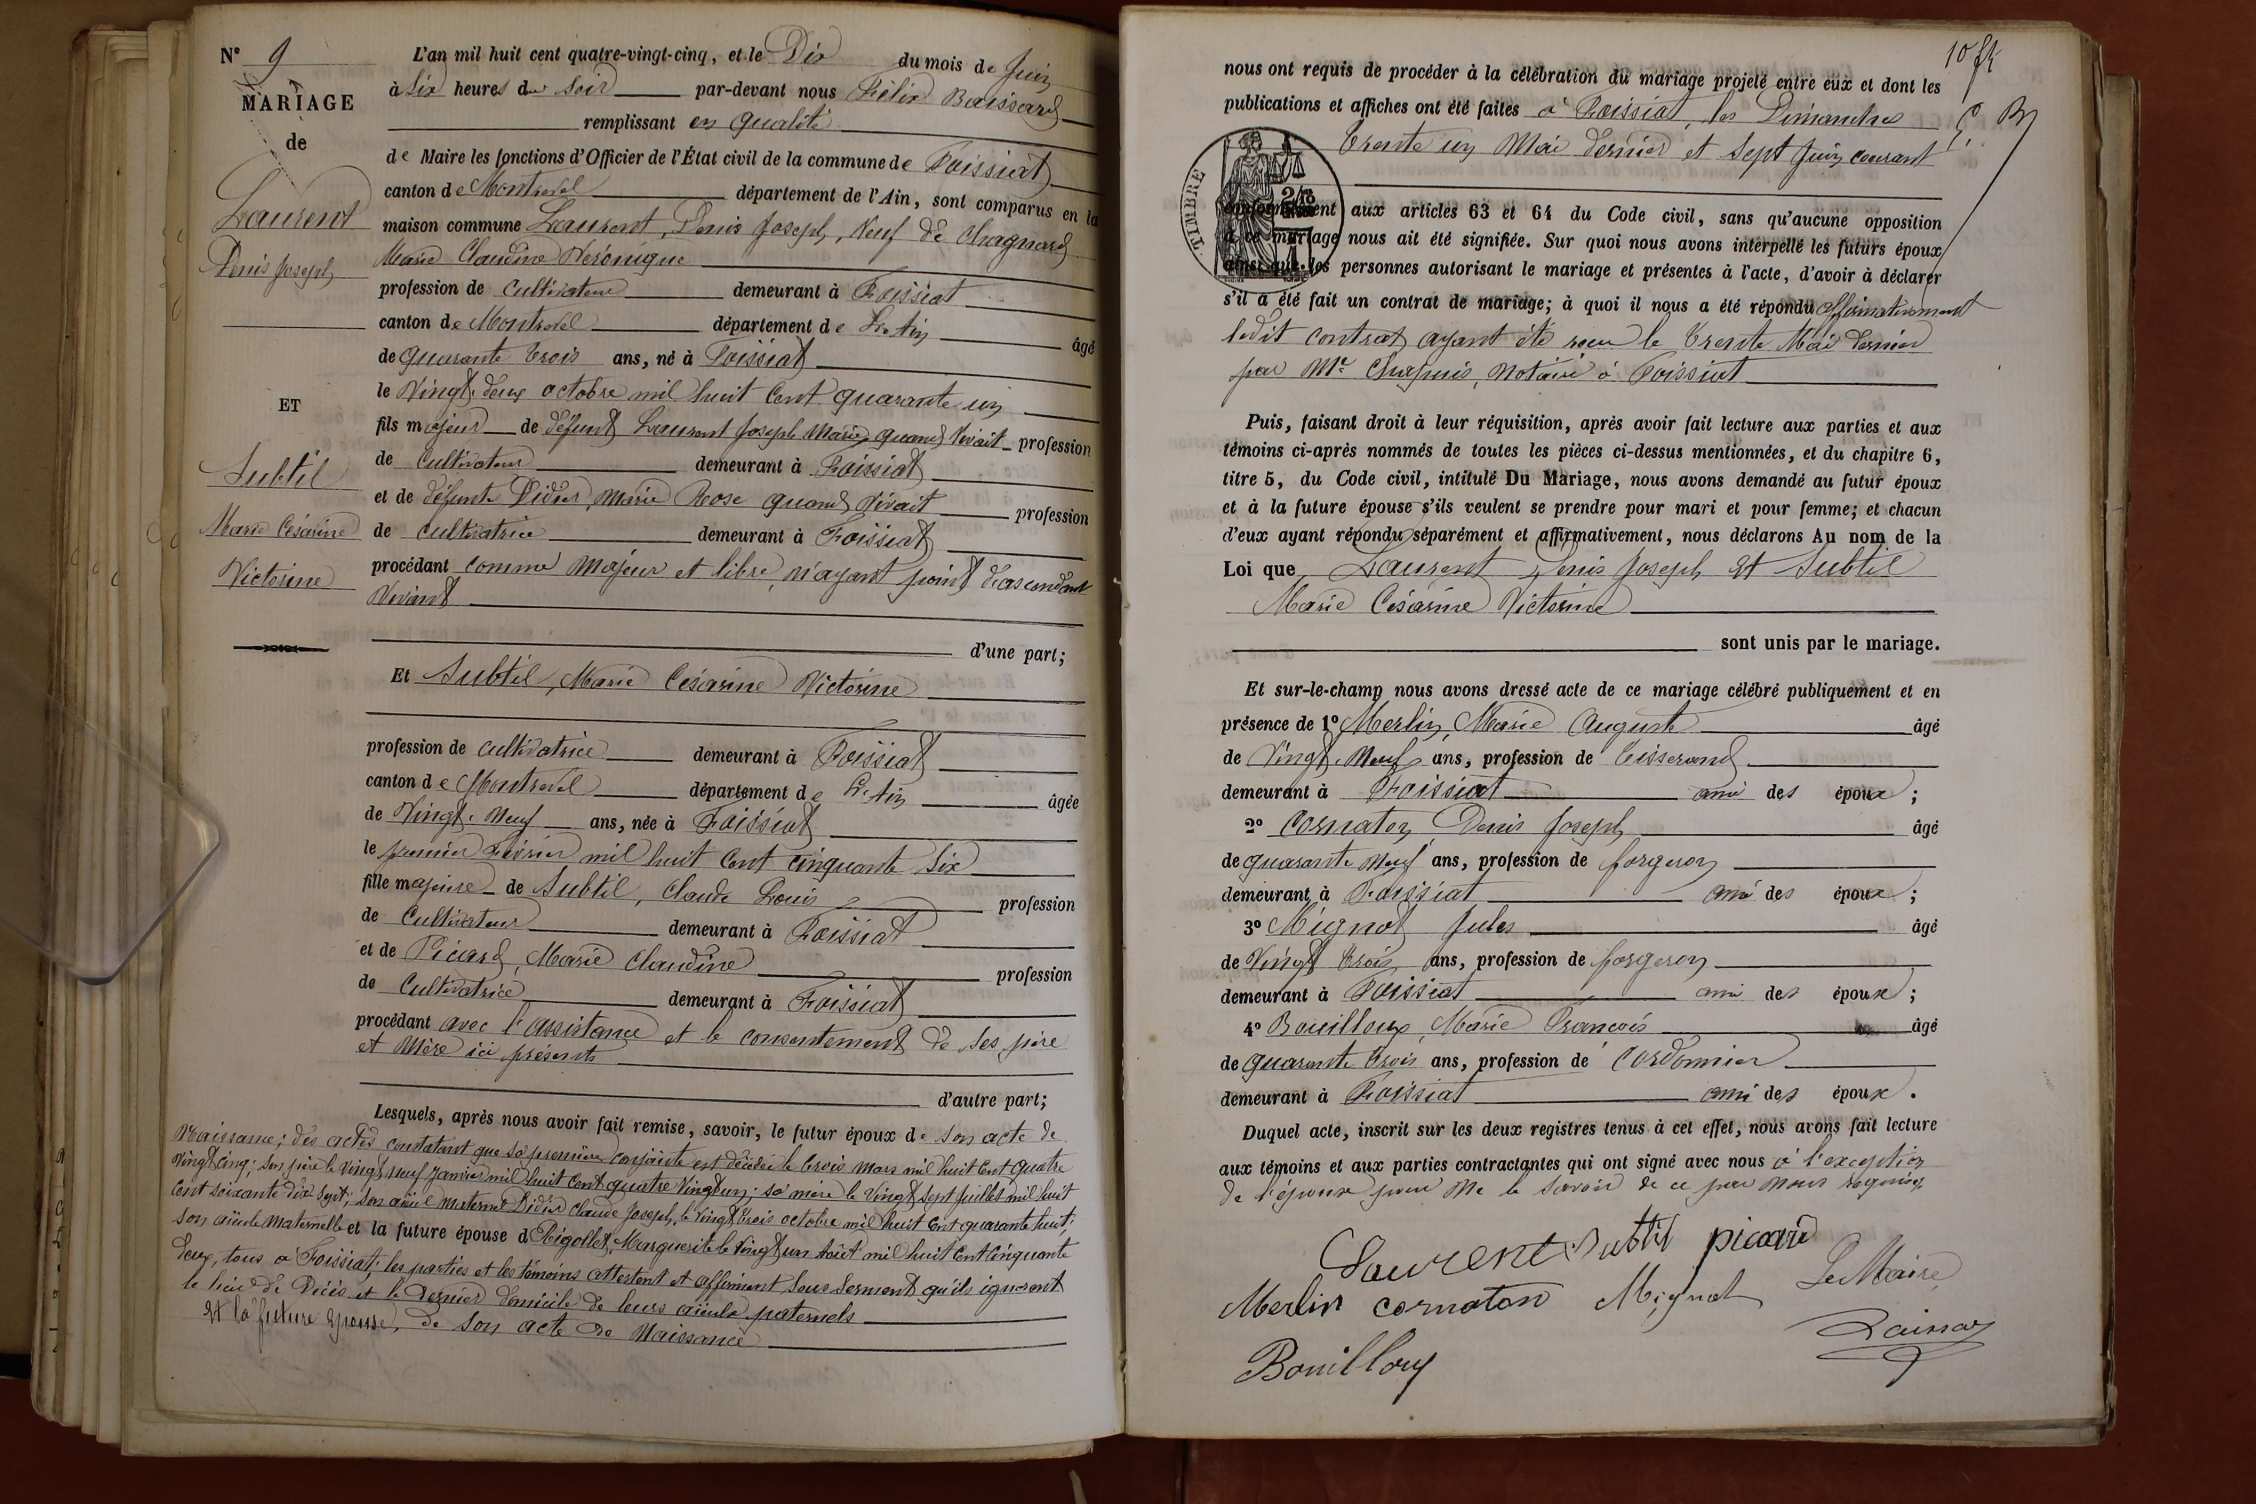 N° 9
MARIAGE
de
Laurent
Denis Joseph
ET
Subtil
Marie Césarine
Victorine
L'an mil huit cent quatre-vingt-cinq, et le Dix du mois de Juin
à Six heures du Soir par-devant nous Félix
remplissant en qualité
de Maire les fonctions d'Officier de l'État civil de la commune de Foissiat
canton de Montrevel département de l'Ain, sont comparus en la
maison commune Laurent, Denis Joseph, Veuf de Chagnard
Marie Claudine Véronique
profession de Cultivateur demeurant à Foissiat
canton de Montrevel département de L'Ain âgé
de quarante trois ans, né à Foissiat
le Vingt deux octobre mil huit cent quarante un
fils majeur de défunt Laurent Joseph Marie quand vivait profession
de Cultivateur demeurant à Foissiat
et de défunte Didier, Marie Rose quand vivait profession
de Cultivatrice demeurant à Foissiat
procédant comme Majeur et libre, n'ayant point d'ascendant
Vivant
d'une part;
Et Subtil, Marie Césarine Victorine
profession de Cultivatrice demeurant à Foissiat
canton de Montrevel département de L'Ain âgée
de Vingt-Neuf ans, née à Foissiat
le premier Février mil huit cent cinquante Six
fille majeure de Subtil, Claude Louis profession
de Cultivateur demeurant à Foissiat
et de Picard, Marie Claudine profession
de Cultivatrice demeurant à Foissiat
procédant avec l'assistance et le consentement de ses père
et Mère ici présents
d'autre part;
Lesquels, après nous avoir fait remise, savoir, le futur époux de son acte de
Naissance; des actes constatant que sa première conjointe est décédée le trois mars mil huit cent quatre
Vingt Cinq; son père le vingt neuf Janvier mil huit cent quatre Vingt un; sa mère le Vingt sept Juillet mil huit
Cent soixante dix sept; son aïeul maternel Didier Claude Joseph, le vingt trois octobre mil huit cent quarante huit;
son aïeule Maternelle et la future épouse d Rigollet, Marguerite le vingt un Août mil huit cent cinquante
deux, tous à Foissiat; les parties et les témoins attestent et affirment sous serment qu'ils ignorent
le lieu de Décès et le Dernier domicile de leurs aïeuls paternels
Et la future épouse, de son acte de Naissance
nous ont requis de procéder à la célébration du mariage projeté entre eux et dont les
publications et affiches ont été faites à Foissiat, les Dimanches
trente un Mai dernier et Sept Juin courant
TIMBRE
conformément aux articles 63 et 64 du Code civil, sans qu'aucune opposition
à ce mariage nous ait été signifiée. Sur quoi nous avons interpellé les futurs époux
ainsi que les personnes autorisant le mariage et présentes à l'acte, d'avoir à déclarer
s'il a été fait un contrat de mariage; à quoi il nous a été répondu affirmativement
ledit contrat ayant été reçu le trente Mai dernier
par Me Chapuis, Notaire à Foissiat
Puis, faisant droit à leur réquisition, après avoir fait lecture aux parties et aux
témoins ci-après nommés de toutes les pièces ci-dessus mentionnées, et du chapitre 6,
titre 5, du Code civil, intitulé Du Mariage, nous avons demandé au futur époux
et à la future épouse s'ils veulent se prendre pour mari et pour femme; et chacun
d'eux ayant répondu séparément et affirmativement, nous déclarons Au nom de la
Loi que Laurent Denis Joseph Et Subtil
Marie Césarine Victorine
sont unis par le mariage.
Et sur-le-champ nous avons dressé acte de ce mariage célébré publiquement et en
présence de 1° Merlin, Marie Auguste âgé
de Vingt-Neuf ans, profession de tisserand
demeurant à Foissiat ami des époux ;
2° Cornaton Denis Joseph âgé
de quarante neuf ans, profession de forgeron
demeurant à Foissiat ami des époux ;
3° Mignot Jules âgé
de Vingt trois ans, profession de forgeron
demeurant à Foissiat ami des époux ;
4° Bouilloux, Marie François âgé
de quarante trois ans, profession de Cordonnier
demeurant à Foissiat ami des époux .
Duquel acte, inscrit sur les deux registres tenus à cet effet, nous avons fait lecture
aux témoins et aux parties contractantes qui ont signé avec nous à l'exception
de l'épouse pour Ne le Savoir de ce par Nous requise
Laurent Subtil picard
Merlin cornaton Mignot Le Maire
Bouilloux